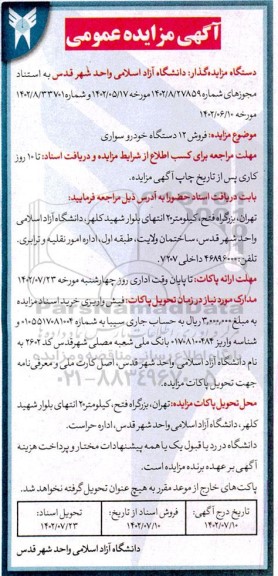 آگهی مزایده عمومی
دستگاه مزایده‌گذار: دانشگاه آزاد اسلامی واحد شهر قدس به استناد
مجوزهای شماره ۱۴۰۲/۸/۲۷۸۵۹ مورخه ۱۴۰۲/۰۵/۱۷ و شماره ۱۴۰۲/۸/۳۳۷۰۱
مورخه ۱۴۰۲/۰۶/۱۰
موضوع مزایده: فروش ۱۲ دستگاه خودرو سواری
مهلت مراجعه برای کسب اطلاع از شرایط مزایده و دریافت اسناد: تا ۱۰ روز
کاری پس از تاریخ چاپ آگهی مزایده.
بابت دریافت اسناد حضوراً به آدرس ذیل مراجعه فرمایید:
تهران، بزرگراه فتح، کیلومتر ۲۰ انتهای بلوار شهید کلهر، دانشگاه آزاد اسلامی
واحد شهر قدس، ساختمان ولایت، طبقه اول، اداره امور نقلیه و ترابری.
تلفن: ۴۶۸۹۶۰۰۰ داخلی ۷۲۰۷.
مهلت ارائه پاکات: تا پایان وقت اداری روز چهارشنبه مورخه ۱۴۰۲/۰۷/۲۳
مدارک مورد نیاز در زمان تحویل پاکات: فیش واریزی خرید اسناد مزایده
به مبلغ ۳,۰۰۰,۰۰۰ ریال به حساب جاری سیبا به شماره ۰۱۰۵۵۱۷۰۸۱۰۰۴ به
شناسه واریز ۰۱۷۰۸۱۰۰۴۸۴ بانک ملی شعبه مصلی شهرقدس کد ۲۶۰۲ به
نام دانشگاه آزاد اسلامی واحد شهر قدس، اصل کارت ملی و معرفی‌نامه
جهت تحویل پاکات مزایده.
محل تحویل پاکات مزایده: تهران، بزرگراه فتح، کیلومتر ۲۰ انتهای بلوار شهید
کلهر، دانشگاه آزاد اسلامی واحد شهر قدس، اداره حراست.
دانشگاه در رد یا قبول یک یا همه پیشنهادات مختار و پرداخت هزینه
آگهی بر عهده برنده مزایده است.
پاکت‌های خارج از موعد مقرر به هیچ عنوان تحویل گرفته نخواهد شد.
تاریخ درج آگهی: فروش اسناد از تاریخ: تحویل اسناد:
۱۴۰۲/۰۷/۱۰ ۱۴۰۲/۰۷/۱۰ ۱۴۰۲/۰۷/۲۳
دانشگاه آزاد اسلامی واحد شهر قدس